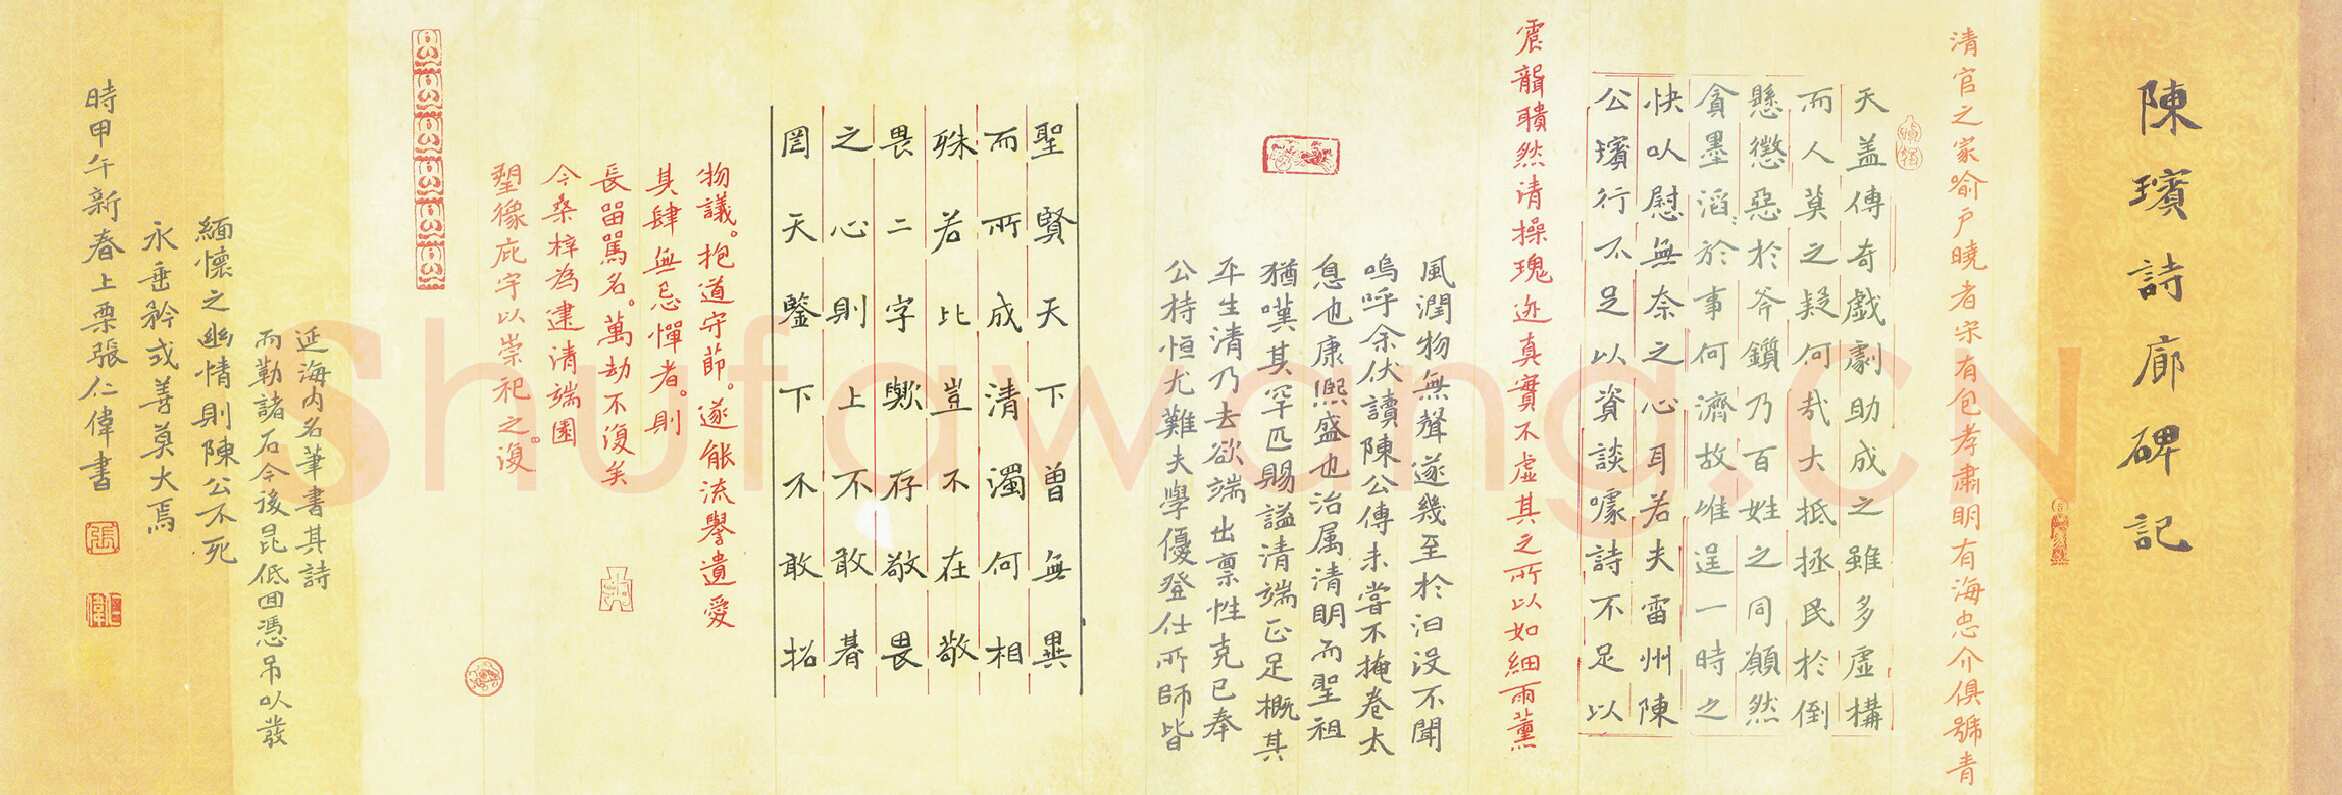 陳璸詩廊碑記
清官之家喻户曉者宋有包孝肅明有海忠介俱號青
天盖傳奇戲劇助成之雖多虛構
而人莫之疑何哉大抵拯民於倒
懸懲惡於斧鑕乃百姓之同願然
貪墨滔於事何濟故唯逞一時之
快以慰無奈之心耳若夫雷州陳
公璸行不足以資談噱詩不足以
震聾聵然清操瑰迹真實不虛其之所以如細雨薰
風潤物無聲遂幾至於汩没不聞
嗚呼余伏讀陳公傳未嘗不掩卷太
息也康熙盛也治属清明而聖祖
猶嘆其罕匹賜謚清端正足概其
平生清乃去欲端出禀性克己奉
公持恒尤難夫學優登仕所師皆
聖賢天下曾無異
而所成清濁何相
殊若比豈不在敬
畏二字歟存敬畏
之心則上不敢暮
罔天鑒下不敢招
物議。抱道守節。遂能流譽遺愛
其肆無忌憚者。則
長留罵名。萬劫不復矣
今桑梓為建清端園
塑像庇宇以崇祀之。復
延海内名筆書其詩
而勒諸石今後昆低徊憑吊以發
緬懷之幽情則陳公不死
永垂矜式善莫大焉
時甲午新春上栗張仁偉書
張
仁偉
shufawang.CN